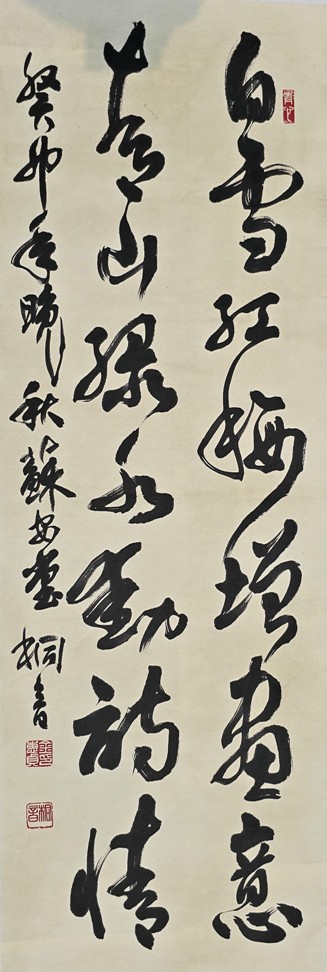 白雪红梅增画意
青山绿水动诗情
癸卯年晚秋苏
桐音